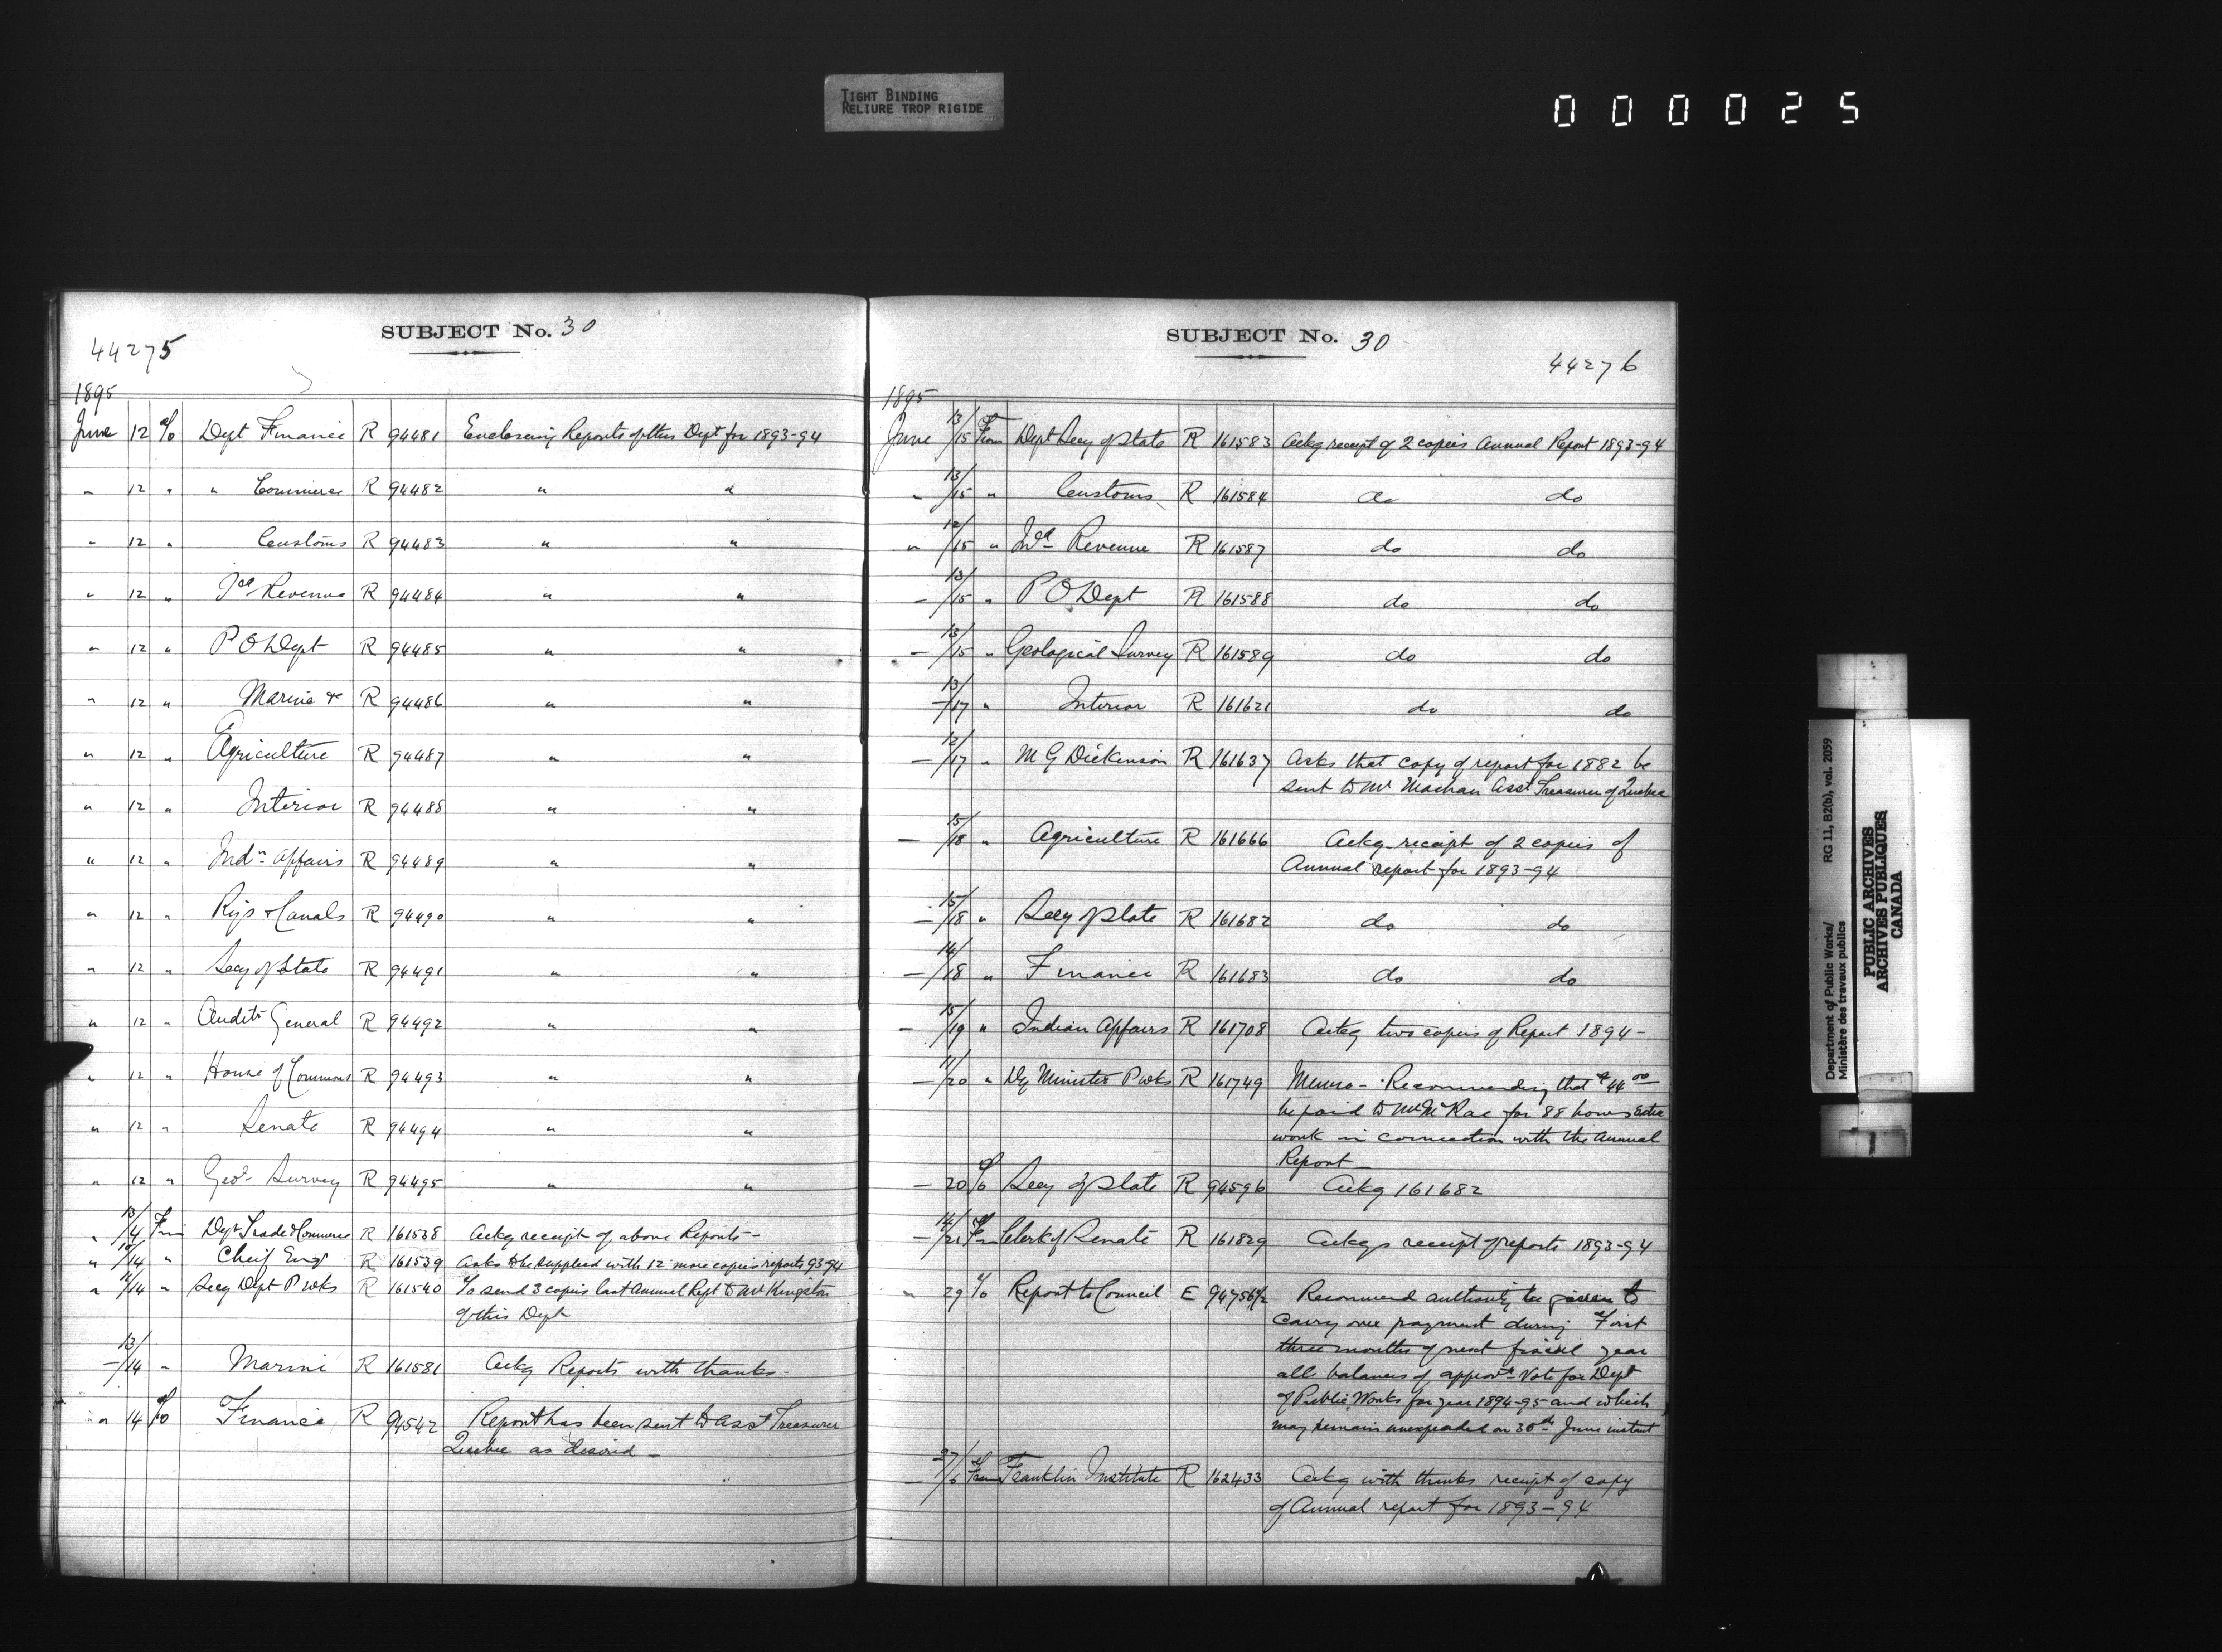 TIGHT BINDING
RELIURE TROP RIGIDE
000025
SUBJECT No. 30
44275
1895
June 12 To Dept Finance R 94481 Enclosing Reports of this Dept for 1893-94
" 12 " " Commerce R 94482 " "
" 12 " Customs R 94483 " "
" 12 " Revenue R 94484 " "
" 12 " P O Dept R 94485 " "
" 12 " Marine &c R 94486 " "
" 12 " Agriculture R 94487 " "
" 12 " Interior R 94488 " "
" 12 " Indn Affairs R 94489 " "
" 12 " Rys & Canals R 94490 " "
" 12 " Secy of State R 94491 " "
" 12 " Auditr General R 94492 " "
" 12 " House of Commons R 94493 " "
" 12 " Senate R 94494 " "
" 12 " Geol Survey R 94495 " "
" 13/14 From Dept Trade & Commerce R 161538 Ackg receipt of above Reports -
" /14 " Cheif Engr R 161539 Asks to be supplied with 12 more copies reports 93-94
" /14 " Secy Dept P Wks R 161540 To send 3 copies last Annual Rept to Mr Kingston
of this Dept
- 13/14 " Marine R 161581 Ackg Reports with thanks -
" 14 To Finance R 94542 Report has been sent to Asst Treasurer
Quebec as desired -
SUBJECT No. 30
44276
1895
June 13/15 From Dept Secy of State R 161583 Ackg receipt of 2 copies Annual Report 1893-94
" 13/15 " Customs R 161584 do do
" 12/15 " Ind Revenue R 161587 do do
- 13/15 " P O Dept R 161588 do do
- 13/15 " Geological Survey R 161589 do do
- 13/17 " Interior R 161621 do do
- 12/17 " M G Dickenson R 161637 Asks that copy of report for 1882 be
sent to Mr Machan Asst Treasurer of Quebec
- 15/18 " Agriculture R 161666 Ackg receipt of 2 copies of
Annual report for 1893-94
- 15/18 " Secy of State R 161682 do do
- 14/18 " Finance R 161683 do do
- 15/19 " Indian Affairs R 161708 Ackg two copies of Report 1894-
- 11/20 " Dy Minister P Wks R 161749 Memo - Recommending that $44 00
be paid to Mr McRae for 88 hours extra
work in connection with the Annual
Report -
- 20 To Secy of State R 94596 Ackg 161682
- 14/21 From Clerk of Senate R 161829 Ackgs receipt of reports 1893-94
" 29 To Report to Council E 94756 1/2 Recommend authority be given to
carry over payment during First
three months of next fiscal year
all balances of appropt Vote for Dept
of Public Works for year 1894-95 and which
may remain unexpended on 30th June instant
- 27/6 From Franklin Institute R 162433 Ackg with thanks receipt of copy
of Annual report for 1893-94
Department of Public Works/ RG 11, B2(b), vol. 2059
Ministère des travaux publics
PUBLIC ARCHIVES
ARCHIVES PUBLIQUES
CANADA